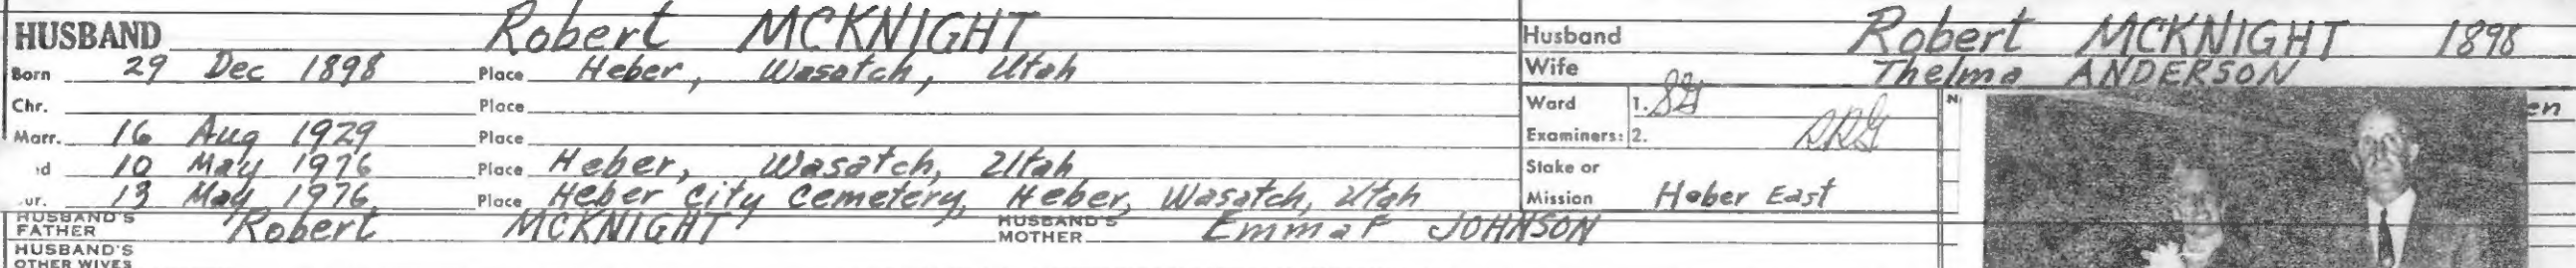 HUSBAND Robert MCKNIGHT
Born 29 Dec 1898 Place Heber, Wasatch, Utah
Chr. Place
Marr. 16 Aug 1929 Place
d 10 May 1976 Place Heber, Wasatch, Utah
ur. 13 May 1976 Place Heber City Cemetery, Heber, Wasatch, Utah
HUSBAND'S FATHER Robert MCKNIGHT HUSBAND'S MOTHER Emma F JOHNSON
HUSBAND'S OTHER WIVES
Husband Robert MCKNIGHT 1898
Wife Thelma ANDERSON
Ward 1.
Examiners: 2.
Stake or
Mission Heber East
N
en